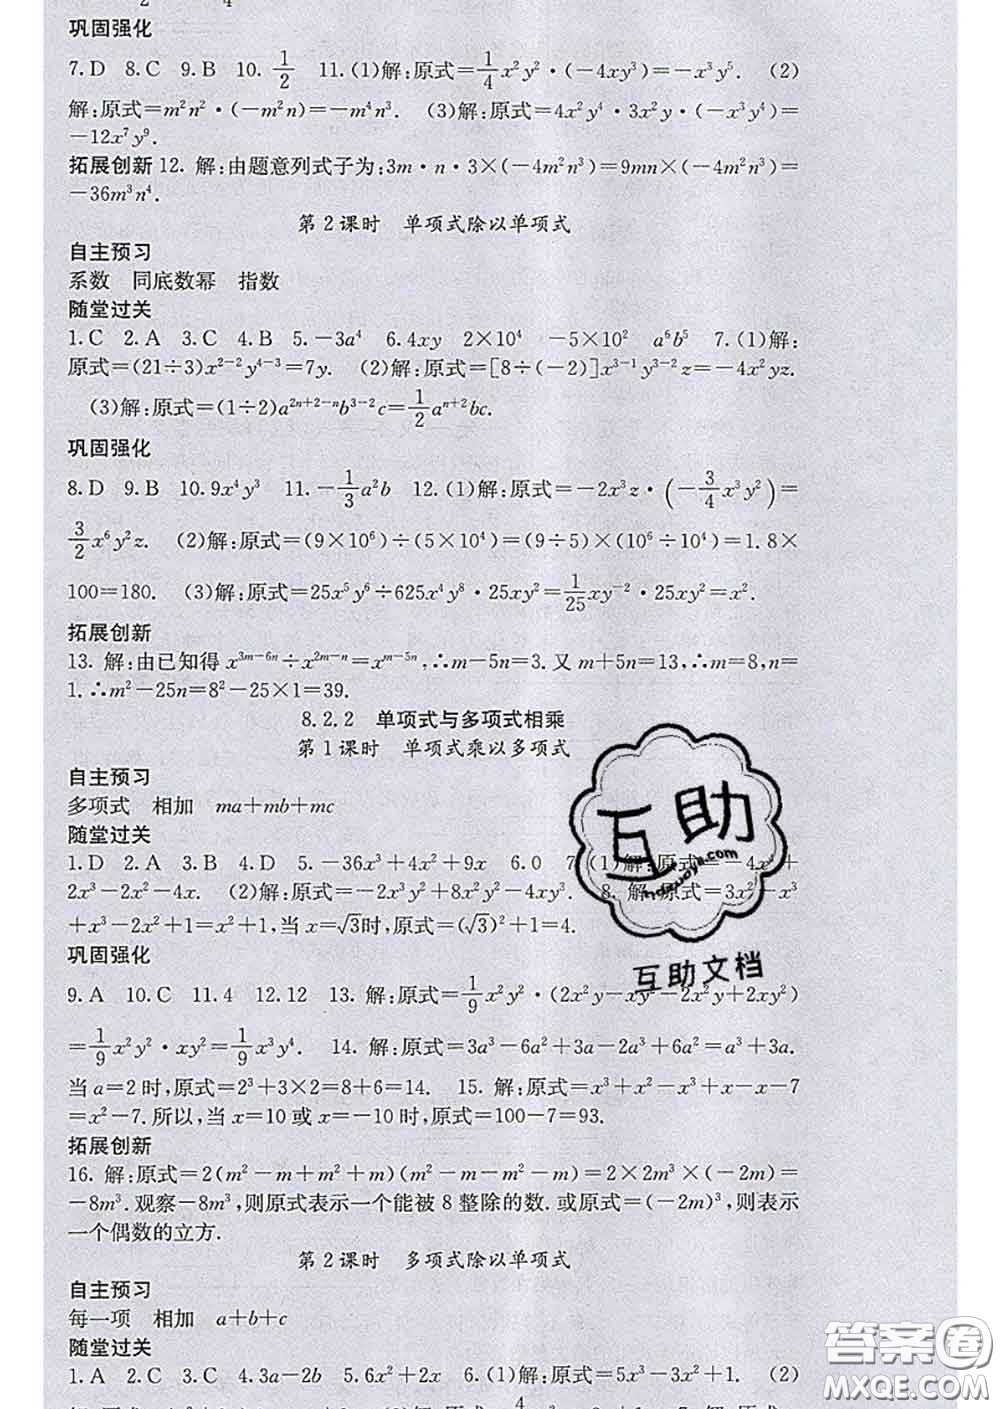 2 4
巩固强化
7.D 8.C 9.B 10. 1/2 11.(1)解:原式=1/4 x²y²·(-4xy³)=-x³y⁵. (2)
解:原式=m²n²·(-m²n)=-m⁴n³. (3)解:原式=4x²y⁴·3x²y·(-x³y⁴)=
-12x⁷y⁹.
拓展创新 12. 解:由题意列式子为:3m·n·3×(-4m²n³)=9mn×(-4m²n³)=
-36m³n⁴.
第2课时 单项式除以单项式
自主预习
系数 同底数幂 指数
随堂过关
1.C 2.A 3.C 4.B 5.-3a⁴ 6.4xy 2×10⁴ -5×10² a⁶b⁵ 7.(1)解:
原式=(21÷3)x²⁻²y⁴⁻³=7y. (2)解:原式=[8÷(-2)]x³⁻¹y³⁻²z=-4x²yz.
(3)解:原式=(1÷2)a²ⁿ⁺²⁻ⁿb³⁻²c=1/2 aⁿ⁺²bc.
巩固强化
8.D 9.B 10.9x⁴y³ 11.-1/3 a²b 12.(1)解:原式=-2x³z·(-3/4 x³y²)=
3/2 x⁶y²z. (2)解:原式=(9×10⁶)÷(5×10⁴)=(9÷5)×(10⁶÷10⁴)=1.8×
100=180. (3)解:原式=25x⁵y⁶÷625x⁴y⁸·25xy²=1/25 xy⁻²·25xy²=x².
拓展创新
13. 解:由已知得 x³ᵐ⁻⁶ⁿ÷x²ᵐ⁻ⁿ=xᵐ⁻⁵ⁿ,∴m-5n=3.又 m+5n=13,∴m=8,n=
1.∴m²-25n=8²-25×1=39.
8.2.2 单项式与多项式相乘
第1课时 单项式乘以多项式
自主预习
多项式 相加 ma+mb+mc
随堂过关
1.D 2.A 3.B 4.D 5.-36x³+4x²+9x 6.0 7.(1)解:原式=-4x³+
2x³-2x²-4x. (2)解:原式=-2x³y²+8x²y²-4xy³. 8. 解:原式=3x²-x³
+x³-2x²+1=x²+1,当 x=√3时,原式=(√3)²+1=4.
巩固强化
9.A 10.C 11.4 12.12 13. 解:原式=1/9 x²y²·(2x²y-xy²-2x²y+2xy²)
=1/9 x²y²·xy²=1/9 x³y⁴. 14. 解:原式=3a³-6a²+3a-2a³+6a²=a³+3a.
当 a=2 时,原式=2³+3×2=8+6=14. 15. 解:原式=x³+x²-x³+x-x-7
=x²-7.所以,当 x=10 或 x=-10 时,原式=100-7=93.
拓展创新
16. 解:原式=2(m²-m+m²+m)(m²-m-m²-m)=2×2m²×(-2m)=
-8m³.观察-8m³,则原式表示一个能被 8 整除的数.或原式=(-2m)³,则表示
一个偶数的立方.
第2课时 多项式除以单项式
自主预习
每一项 相加 a+b+c
随堂过关
1.A 2.C 3.C 4.3a-2b 5.6x²+2x 6.(1)解:原式=5x³-3x²+1. (2)
4
互助
hdzuoye.com
互助文档
答案圈
MXQE.COM